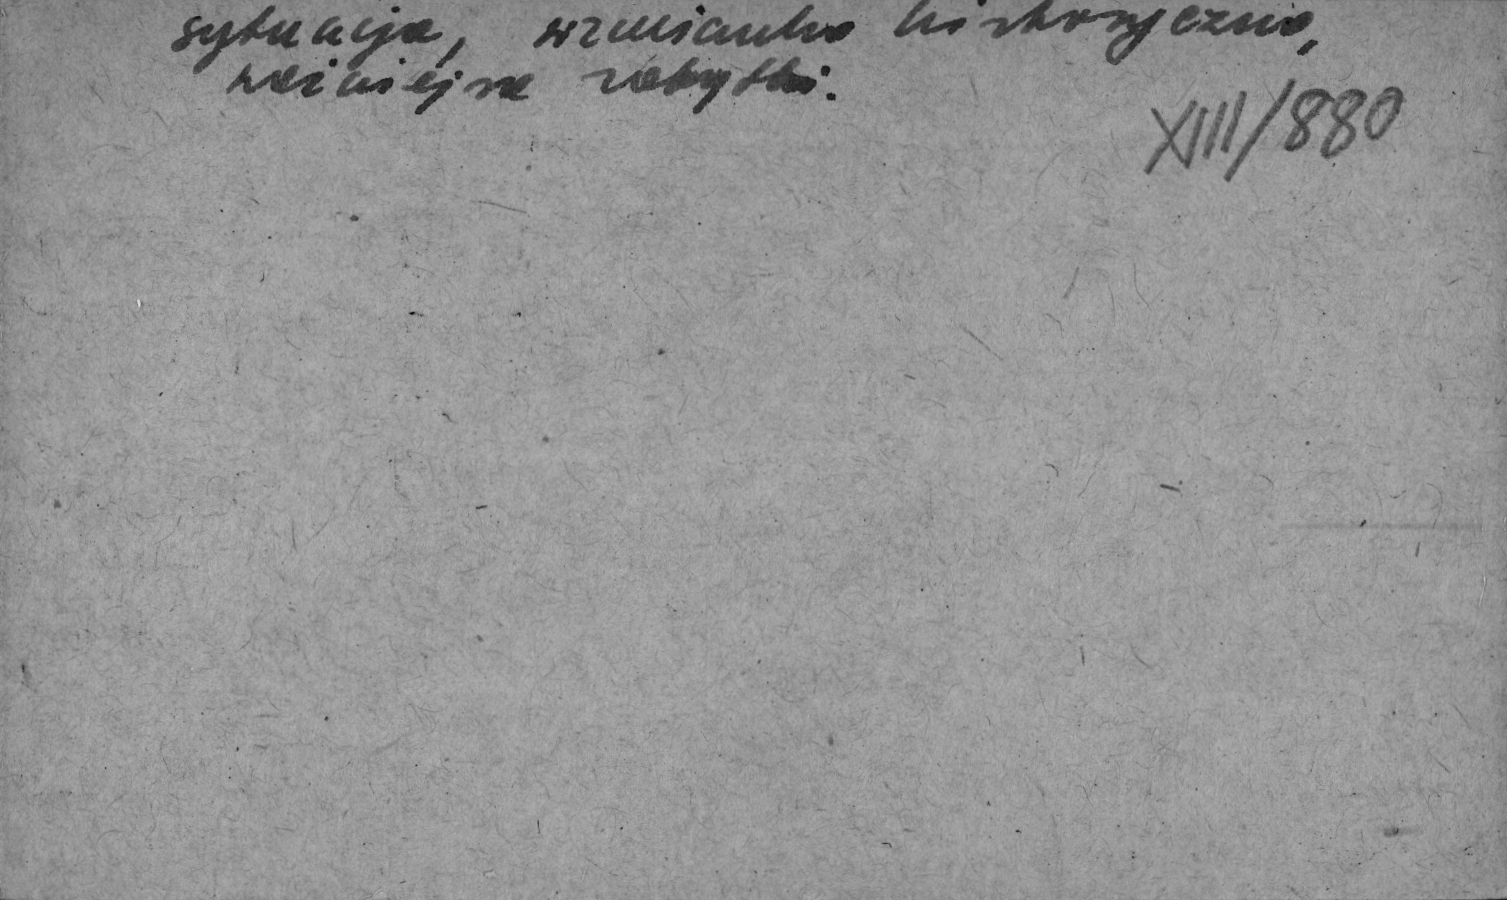 sytuacja, wzmianka historyczna,
ważniejsze zabytki.
XIII/880